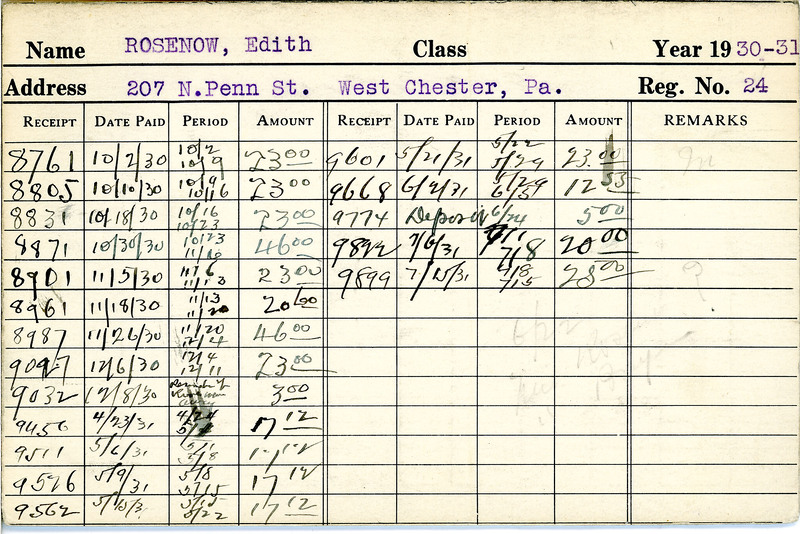 Name ROSENOW, Edith Class Year 19 30-31
Address 207 N.Penn St. West Chester, Pa. Reg. No. 24
RECEIPT DATE PAID PERIOD AMOUNT RECEIPT DATE PAID PERIOD AMOUNT REMARKS
8761 10/2/30 10/2 10/9 23.00 9601 5/21/31 5/22 5/29 23.00
8805 10/10/30 10/9 10/16 23.00 9668 6/2/31 5/29 12 55
8831 10/18/30 10/16 10/23 23.00 9774 Deposit 6/24 5.00
8871 10/30/30 10/23 46.00 7/6/31 7/1 7/8 20.00
8901 11/5/30 11/6 11/13 23.00 9899 7/15/31 7/8 7/15
8961 11/18/30 11/13 11/20 20.00
8987 11/26/30 11/20 12/4 46.00
12/6/30 12/4 12/11 23.00
9032 12/8/30 3.00
9456 4/23/31 4/24 17 12
9511 5/6/31 5/1 5/8 17 12
9526 5/9/31 5/8 5/15 17 12
9562 5/15/31 5/15 5/22 17 12